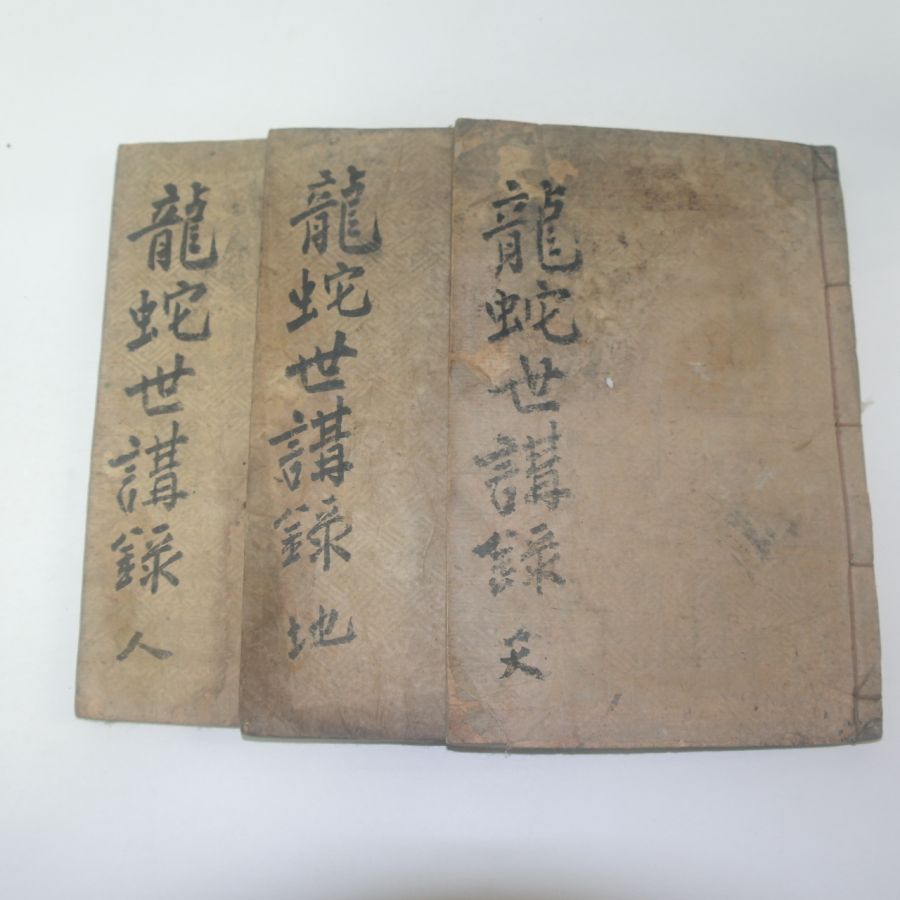 龍蛇世講錄 天
龍蛇世講錄 地
龍蛇世講錄 人